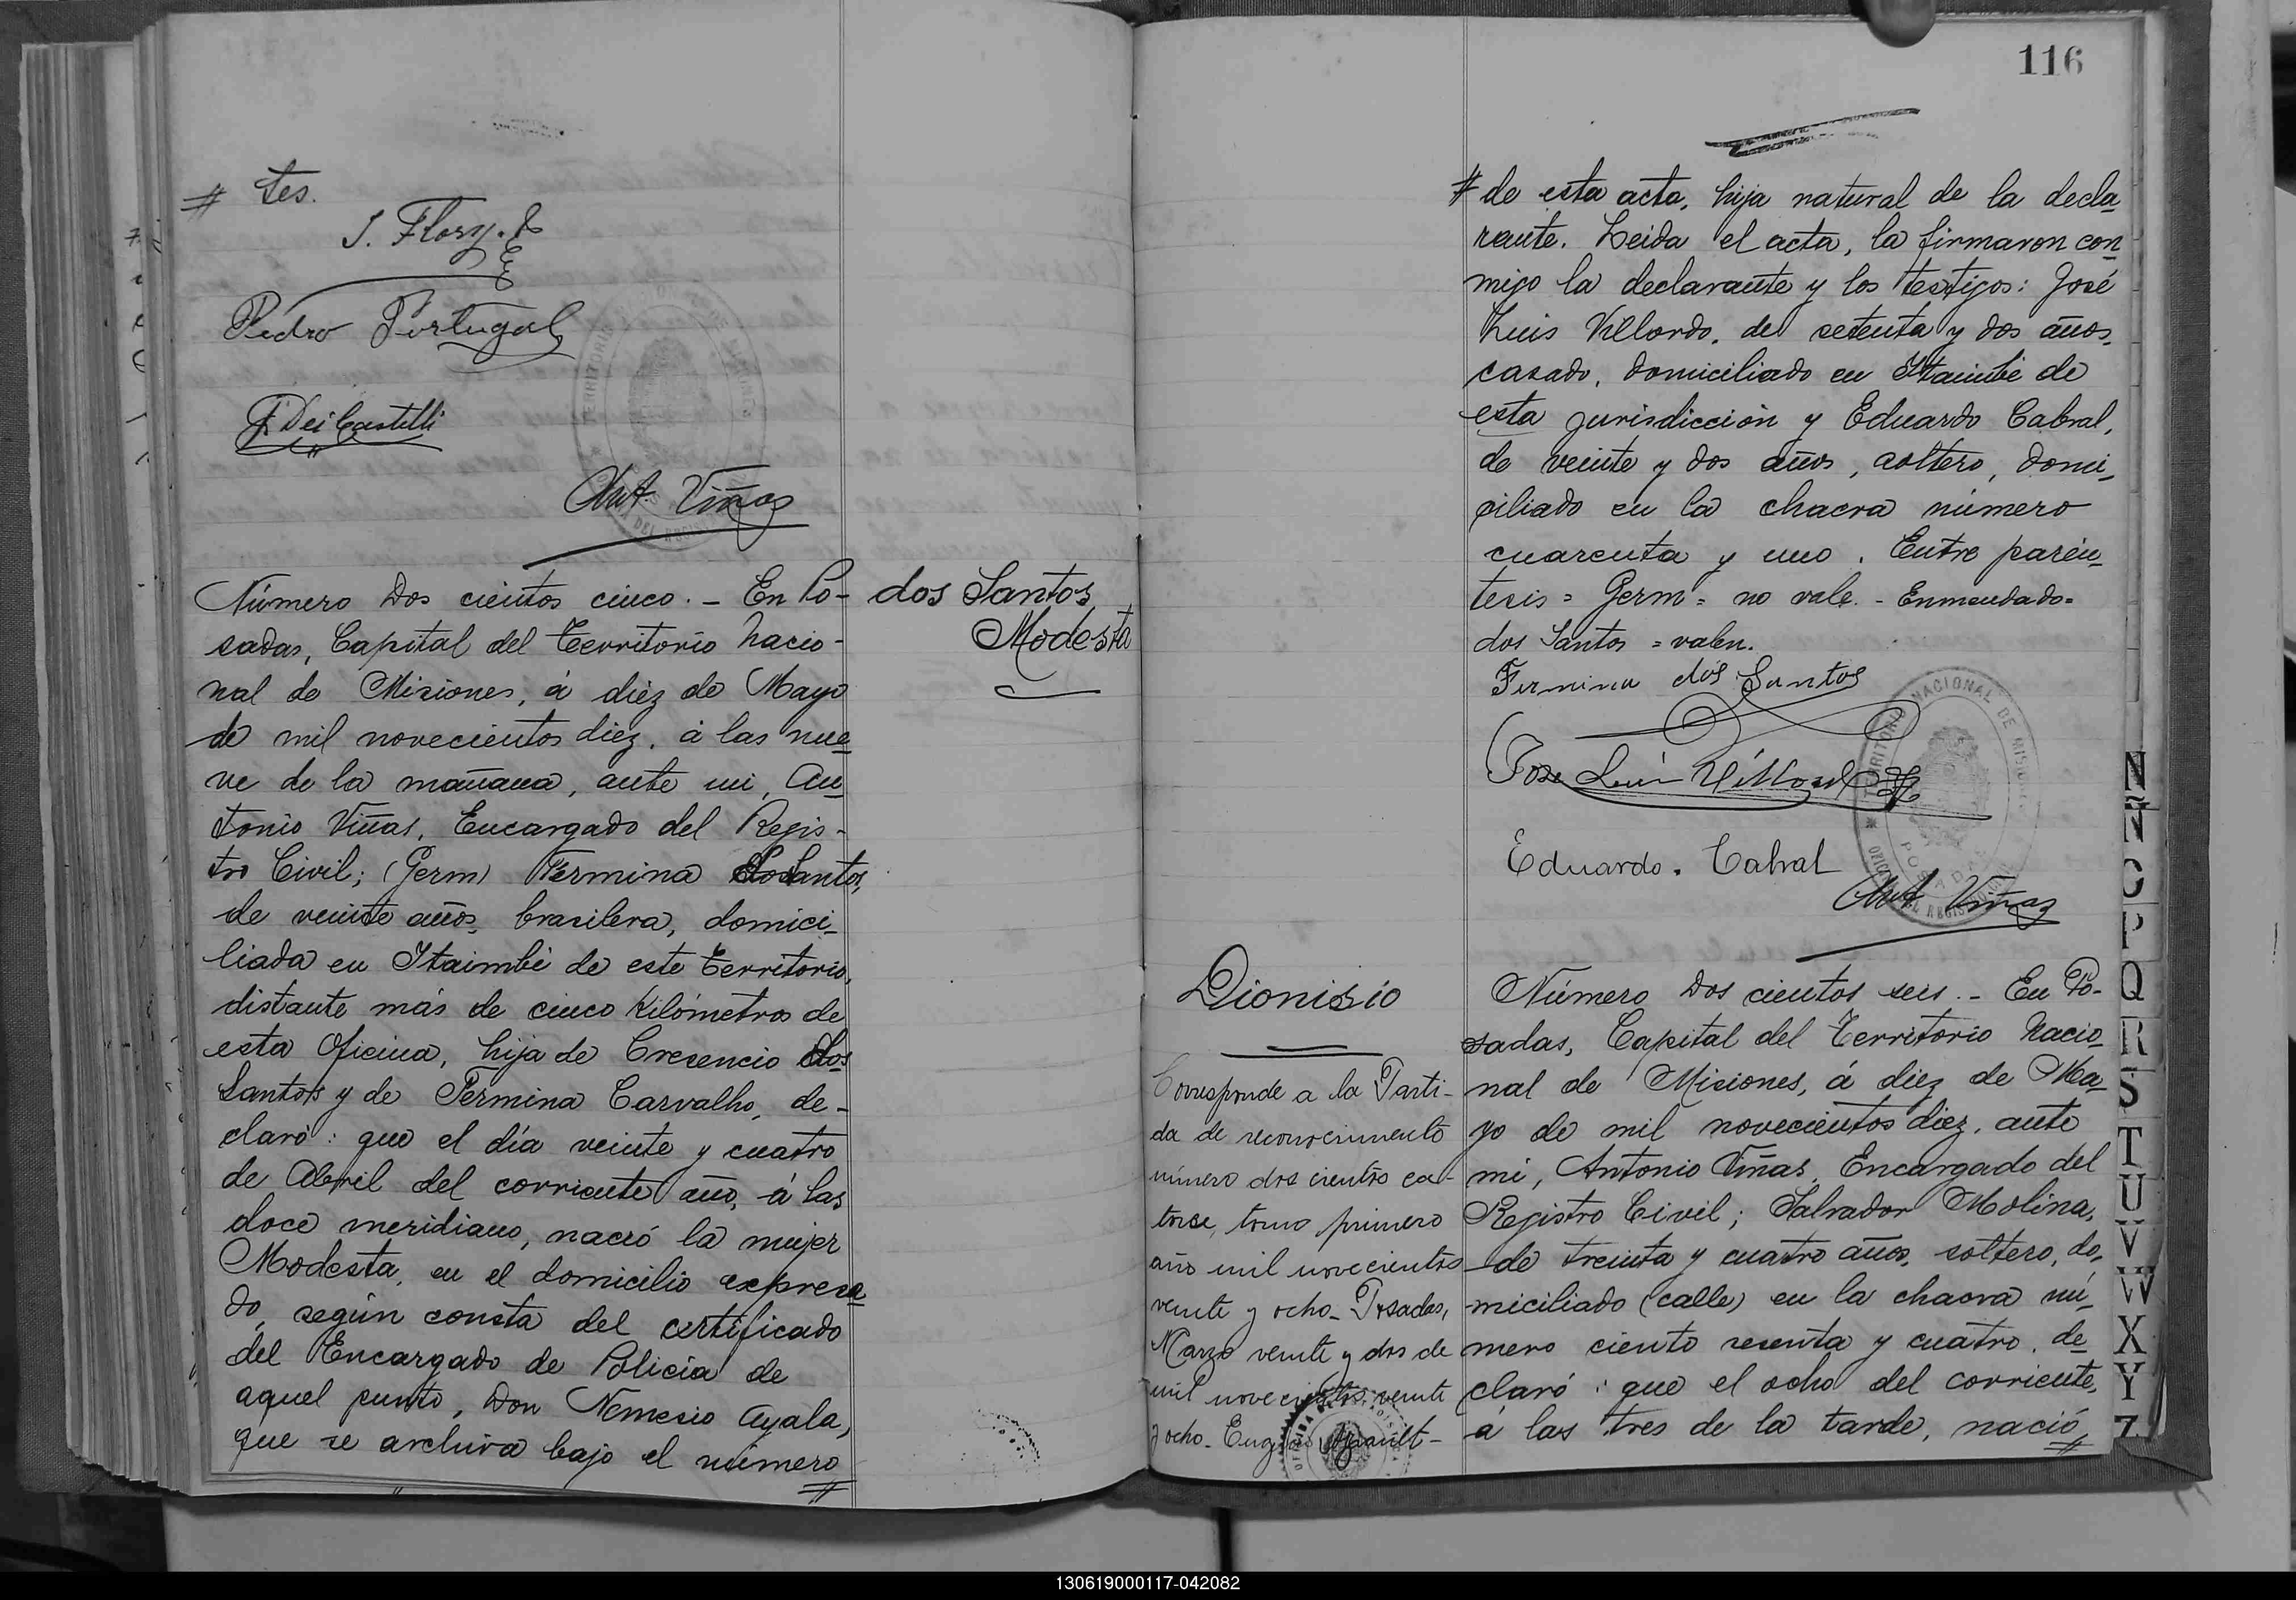 # tes.
J. Flory.
Pedro Portugal
J. Dei Castelli
Ant. Viñas
Número dos cientos cinco. - En Po-
sadas, Capital del Territorio Nacio-
nal de Misiones, á diez de Mayo
de mil novecientos diez, á las nue
ve de la mañana, ante mi, An
tonio Viñas, Encargado del Regis-
tro Civil; (Germ) Fermina dos Santos,
de veinte años, brasilera, domici-
liada en Itaimbé de este Territorio,
distante más de cinco kilómetros de
esta Oficina, hija de Cresencio dos
Santos y de Fermina Carvalho, de-
claró: que el día veinte y cuatro
de Abril del corriente año, á las
doce meridiano, nació la mujer
Modesta, en el domicilio expresa
do, según consta del certificado
del Encargado de Policía de
aquel punto, Don Nemesio Ayala,
que se archiva bajo el número
#
dos Santos,
Modesta
116
# de esta acta, hija natural de la decla
rante. Leida el acta, la firmaron con
migo la declarante y los testigos: José
Luis Villordo, de setenta y dos años,
casado, domiciliado en Itaimbé de
esta jurisdicción y Eduardo Cabral,
de veinte y dos años, soltero, domi-
ciliado en la chacra número
cuarenta y uno. Entre parén-
tesis = Germ = no vale. - Enmendado=
dos Santos = valen.
Fermina dos Santos
Jose Luis Villordo
Eduardo. Cabral
Ant Viñas
TERRITORIO NACIONAL DE MISIONES
POSADAS
Dionisio
Corresponde a la Parti-
da de reconocimiento
número dos cientos ca-
torce, tomo primero
año mil novecientos
veinte y ocho_ Posadas,
Marzo veinte y dos de
mil novecientos veinte
y ocho_
Número dos cientos seis. - En Po-
sadas, Capital del Territorio Nacio
nal de Misiones, á diez de Ma-
yo de mil novecientos diez, ante
mi, Antonio Viñas, Encargado del
Registro Civil; Salvador Molina,
de treinta y cuatro años, soltero, do-
miciliado (calle) en la chacra nú-
mero ciento sesenta y cuatro, de
claró: que el ocho del corriente,
á las tres de la tarde, nació
#
N
Ñ
O
P
Q
R
S
T
U
V
W
X
Y
Z
130619000117-042082